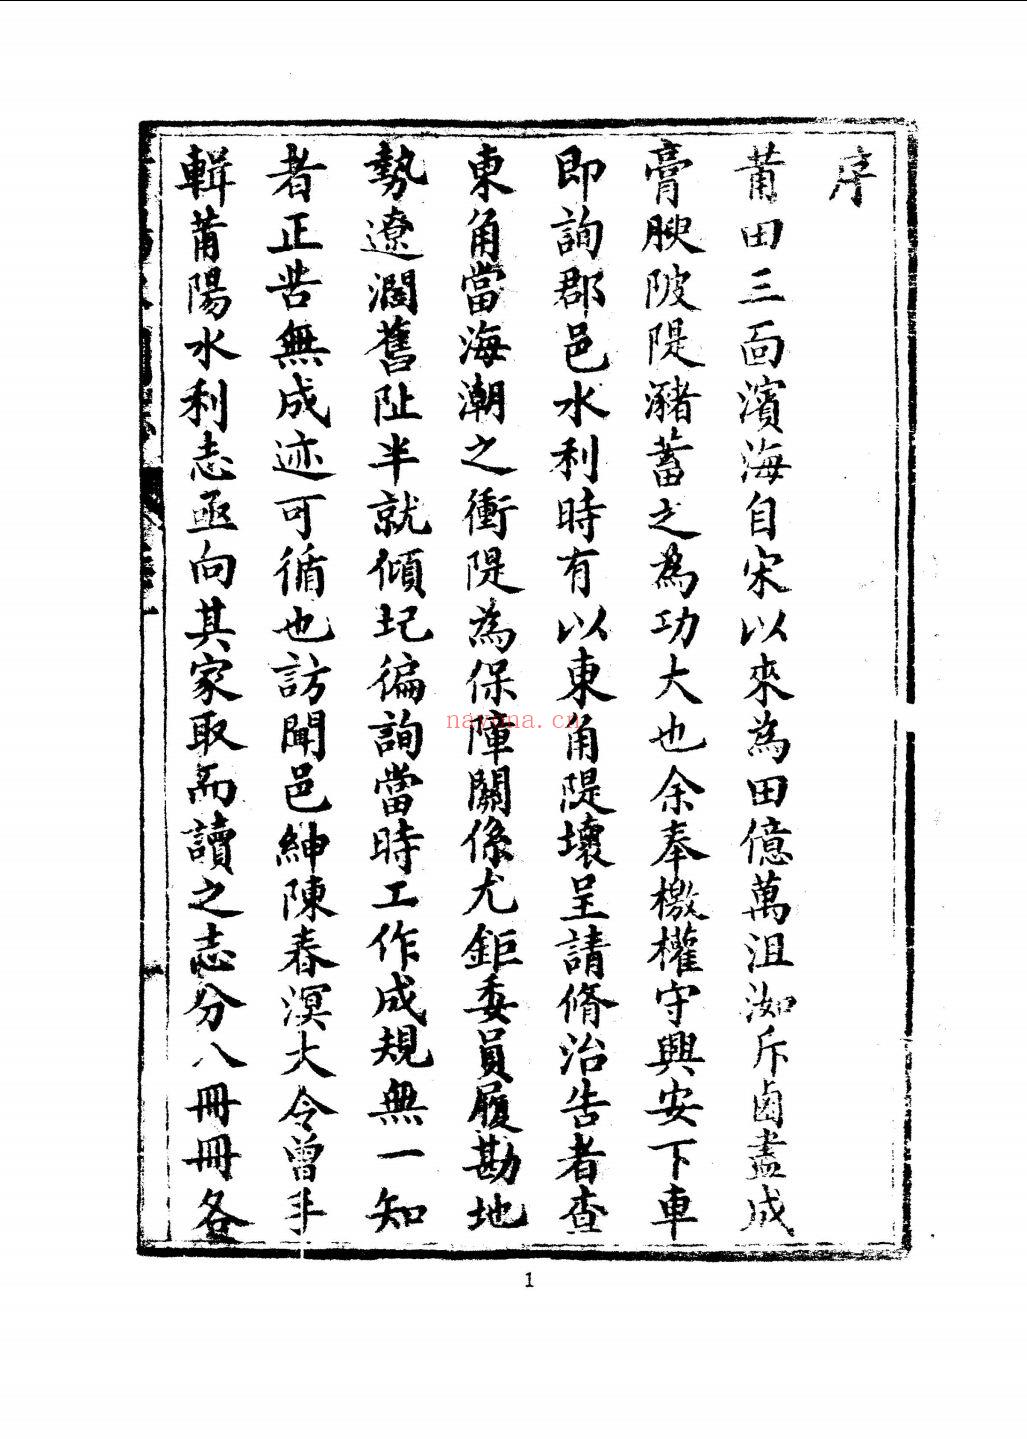 序
莆田三面濱海自宋以來為田億萬沮洳斥鹵盡成
膏腴陂隄瀦蓄之為功大也余奉檄權守興安下車
即詢郡邑水利時有以東角隄壞呈請脩治告者查
東角當海潮之衝隄為保障關係尤鉅委員履勘地
勢遼濶舊阯半就傾圮徧詢當時工作成規無一知
者正苦無成迹可循也訪聞邑紳陳春溟大令曾手
輯莆陽水利志亟向其家取而讀之志分八冊冊各
nayona.cn
1